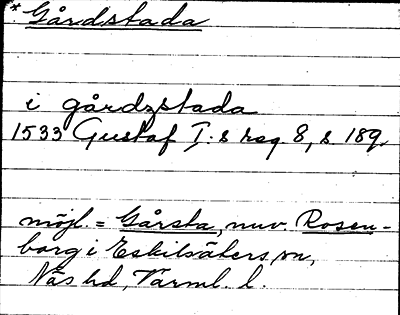 * Gårdstada
i gårdzstada
1533 Gustaf I:s reg. 8, s. 189.
möjl. = Gårsta, nuv. Rosen-
borg i Eskilsäters sn,
Näs hd, Värml. l.